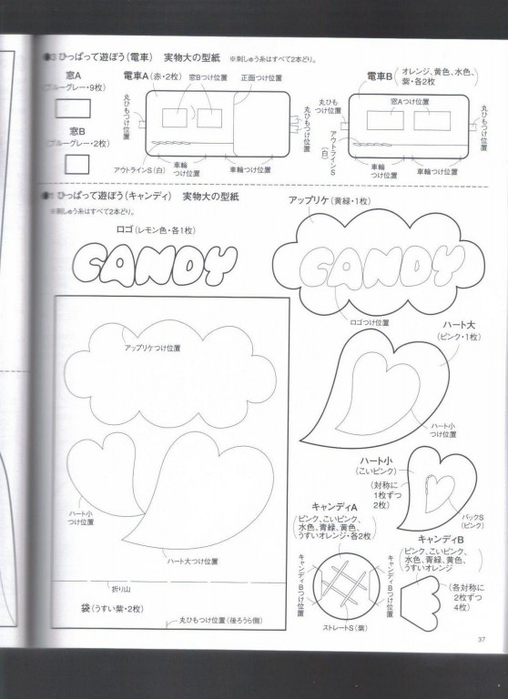 ひっぱって遊ぼう(電車) 実物大の型紙 ※刺しゅう糸はすべて2本どり。
窓A
(ブルーグレー・9枚)
窓B
(ブルーグレー・2枚)
電車A(赤・2枚)
窓Bつけ位置
正面つけ位置
丸ひもつけ位置
丸ひもつけ位置
アウトラインS(白)
車輪つけ位置
車輪つけ位置
電車B(オレンジ、黄色、水色、
紫・各2枚)
窓Aつけ位置
丸ひもつけ位置
丸ひもつけ位置
アウトラインS(白)
車輪
つけ位置
車輪つけ位置
ひっぱって遊ぼう(キャンディ) 実物大の型紙
※刺しゅう糸はすべて2本どり。
ロゴ(レモン色・各1枚)
CANDY
アップリケ(黄緑・1枚)
CANDY
ロゴつけ位置
アップリケつけ位置
ハート大
(ピンク・1枚)
ハート小
つけ位置
ハート小
つけ位置
ハート大つけ位置
ハート小
(こいピンク)
(対称に
1枚ずつ
2枚)
バックS
(ピンク)
キャンディA
(ピンク、こいピンク、
水色、青緑、黄色、
うすいオレンジ・各2枚)
キャンディBつけ位置
キャンディBつけ位置
ストレートS(紫)
キャンディB
(ピンク、こいピンク、
水色、青緑、黄色、
うすいオレンジ)
(各対称に
2枚ずつ
4枚)
折り山
袋(うすい紫・2枚)
丸ひもつけ位置(後ろうら側)
37